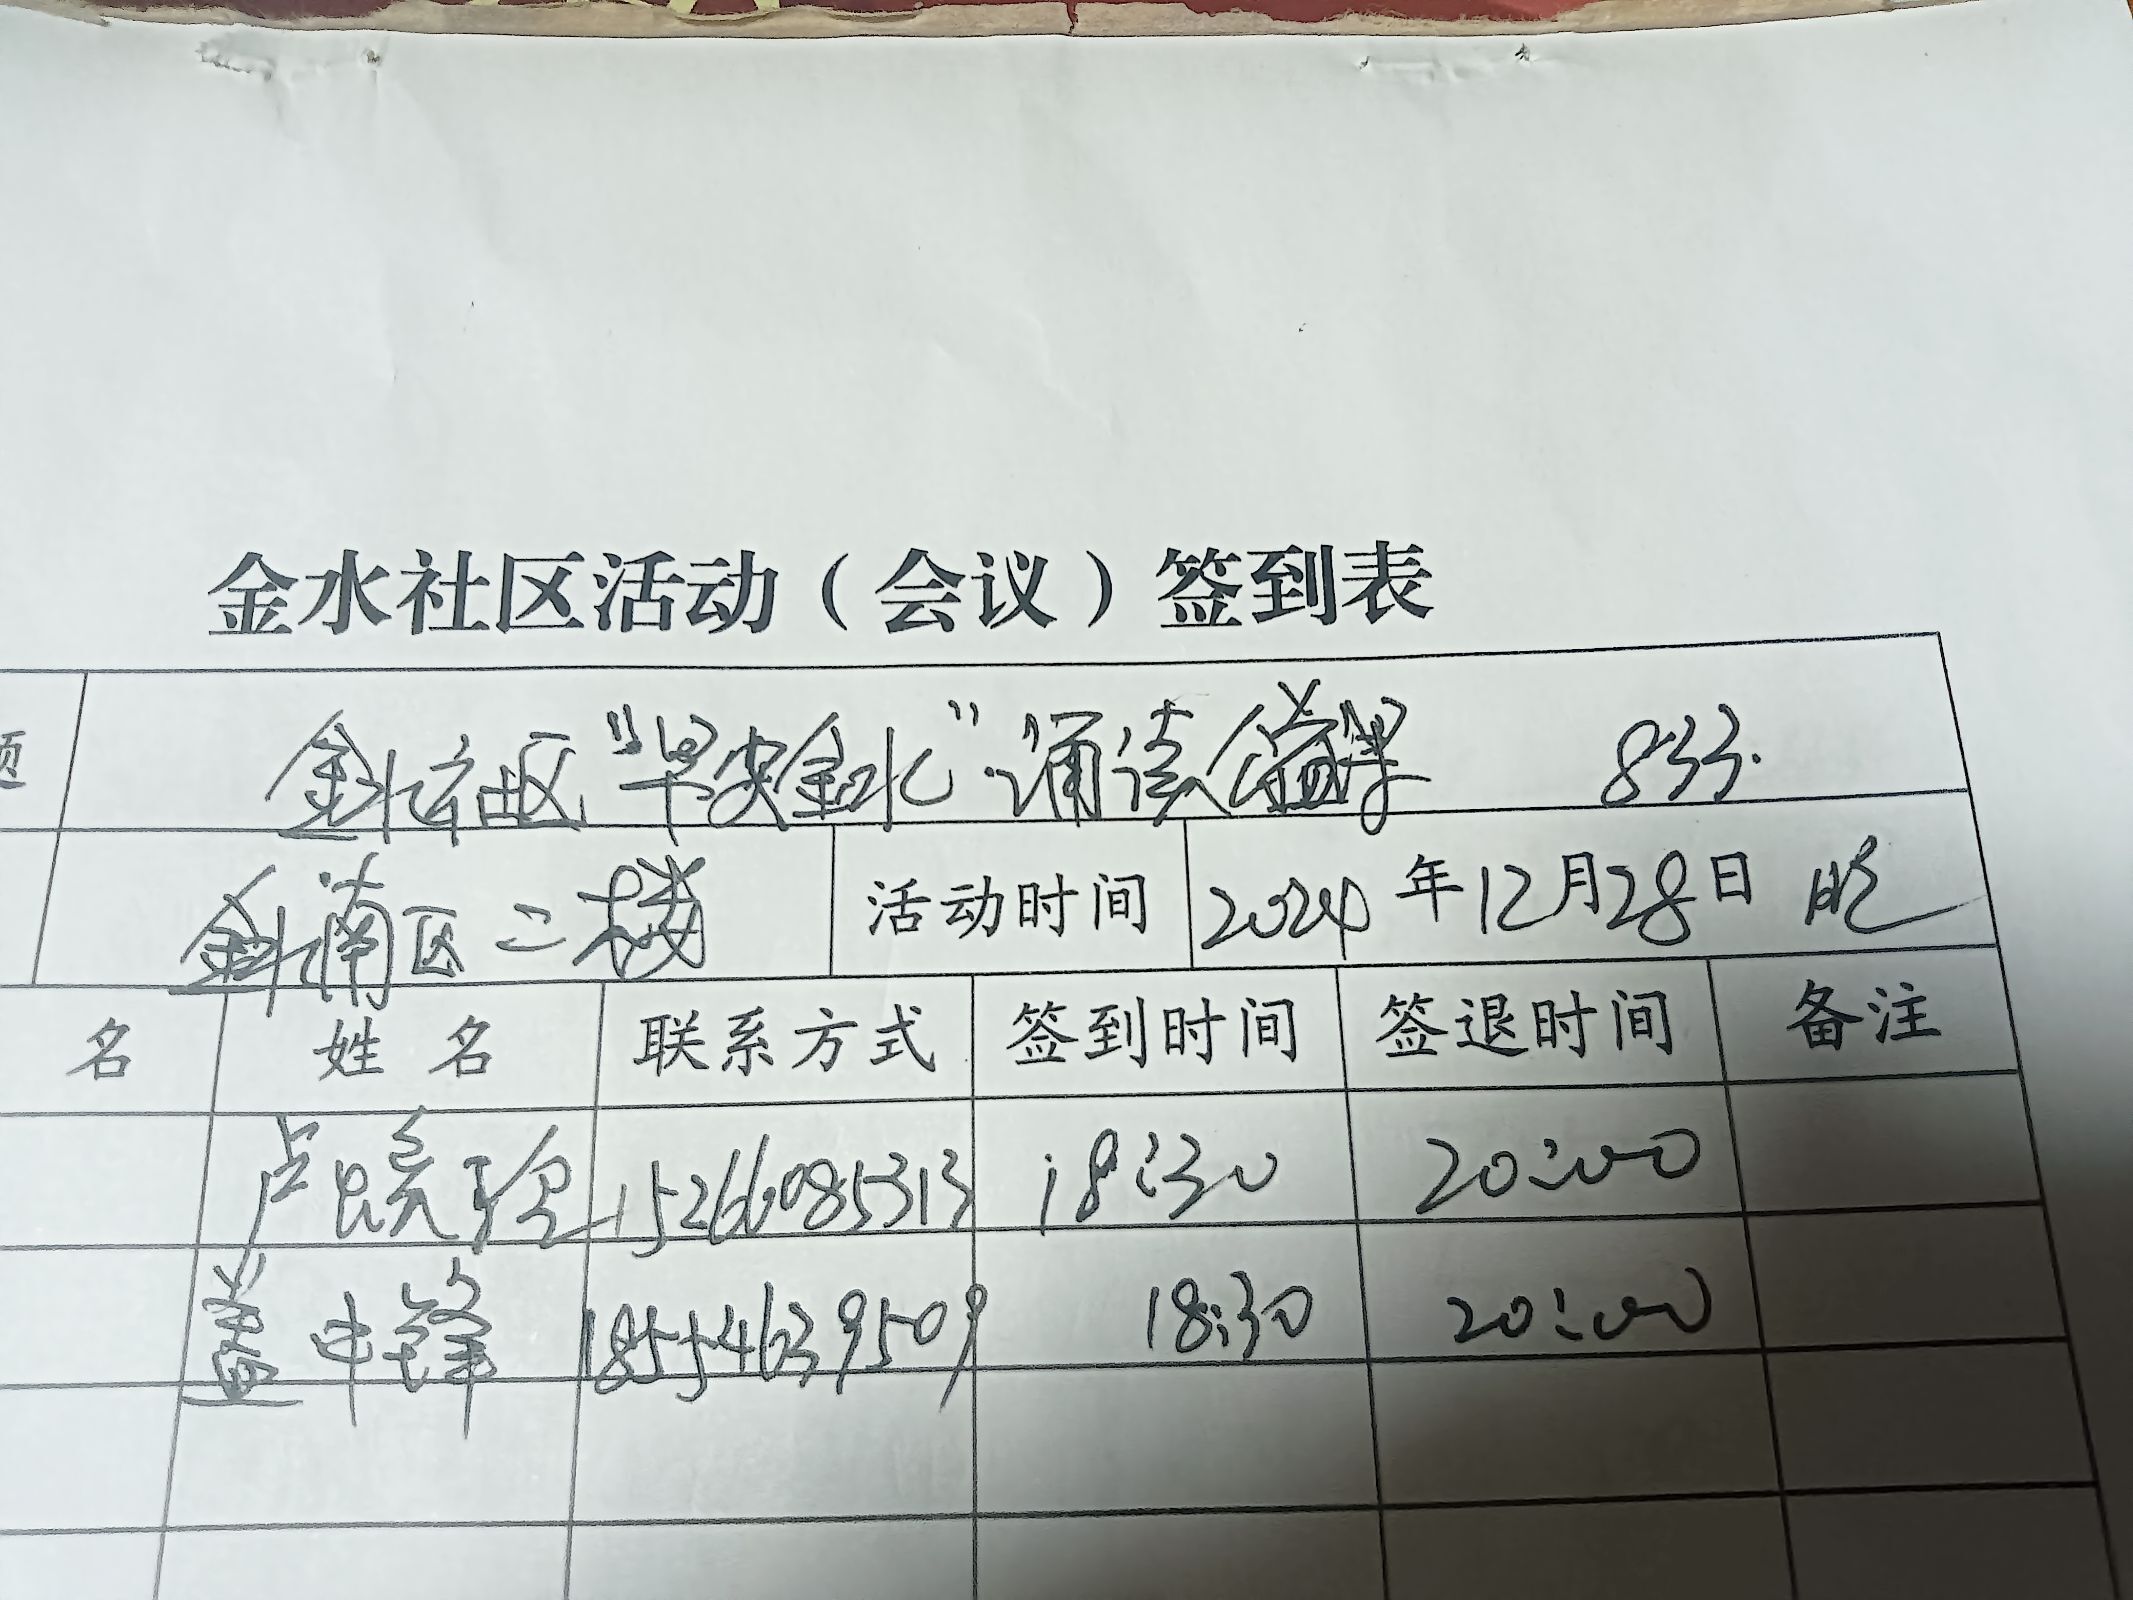 金水社区活动（会议）签到表
题 金水社区“早安金水”诵读公益课 833.
金水南区二楼 活动时间 2024年12月28日 晚
名 姓名 联系方式 签到时间 签退时间 备注
卢晓玲 15266085313 18:30 20:00
盖中锋 18554639509 18:30 20:00